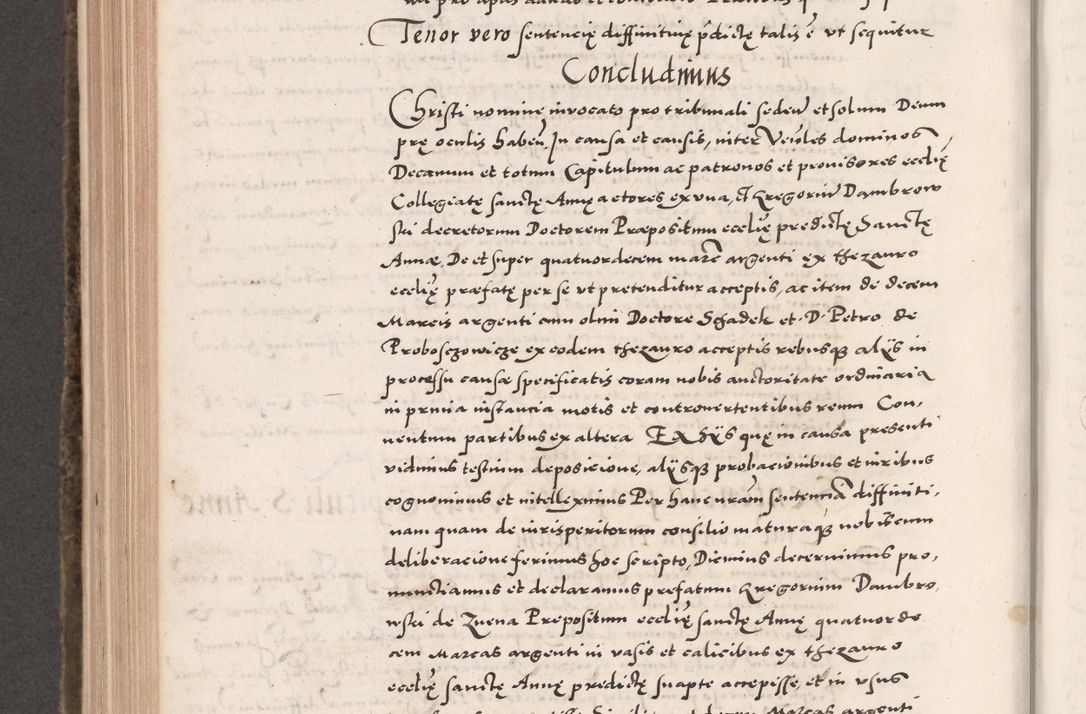 Tenor vero sentencię diffinitiuię p̄dictę talis ē ut sequitur
Concludimus
Christi nomine invocato pro tribunali seden̄ et solum Deum
prę oculis haben̄. In causa et causis, inter Ven̄les dominos
Decanum et totum Capitulum ac patronos et prouisores ecclię
Collegiatę sanctę Annę actores ex vna, et Gregoriu̅ Dambrow
ski decretorum Doctorem Præpositum ecclię predictę Sanctę
Annæ. De et super quatuordecem marc̄ argenti ex thezauro
ecclię præfatę per se ut pretenditur acceptis, ac item de decem
Marcis argenti cum olim Doctore Schadek et D. Petro de
Proboszowicze ex eodem thezauro acceptis rebusq̨ alÿs in
processu causæ specificatis coram nobis auctoritate ordinaria
in prima instancia motis et controuertentibus reum Con,
uentum partibus ex altera Ex hÿs quę in causa presenti
vidimus testium deposicione, alÿsq̨ probacionibus et iuribus
cognouimus et intelleximus Per hanc nr̄am sentenciā diffiniti,
uam quam de iurisperitorum consilio maturaq̨ nobiscum
deliberacione ferimus hoc scripto, Dicimus decernimus pro,
nunctiamus et declaramus prefatum Gregorium Dambro,
wski de Zuena Prepositum ecclię sanctę Annę quatuorde
cem Marcas argenti in vasis et calicibus ex thezauro
ecclię sanctę Annę predictę suapte accepisse, et in usus